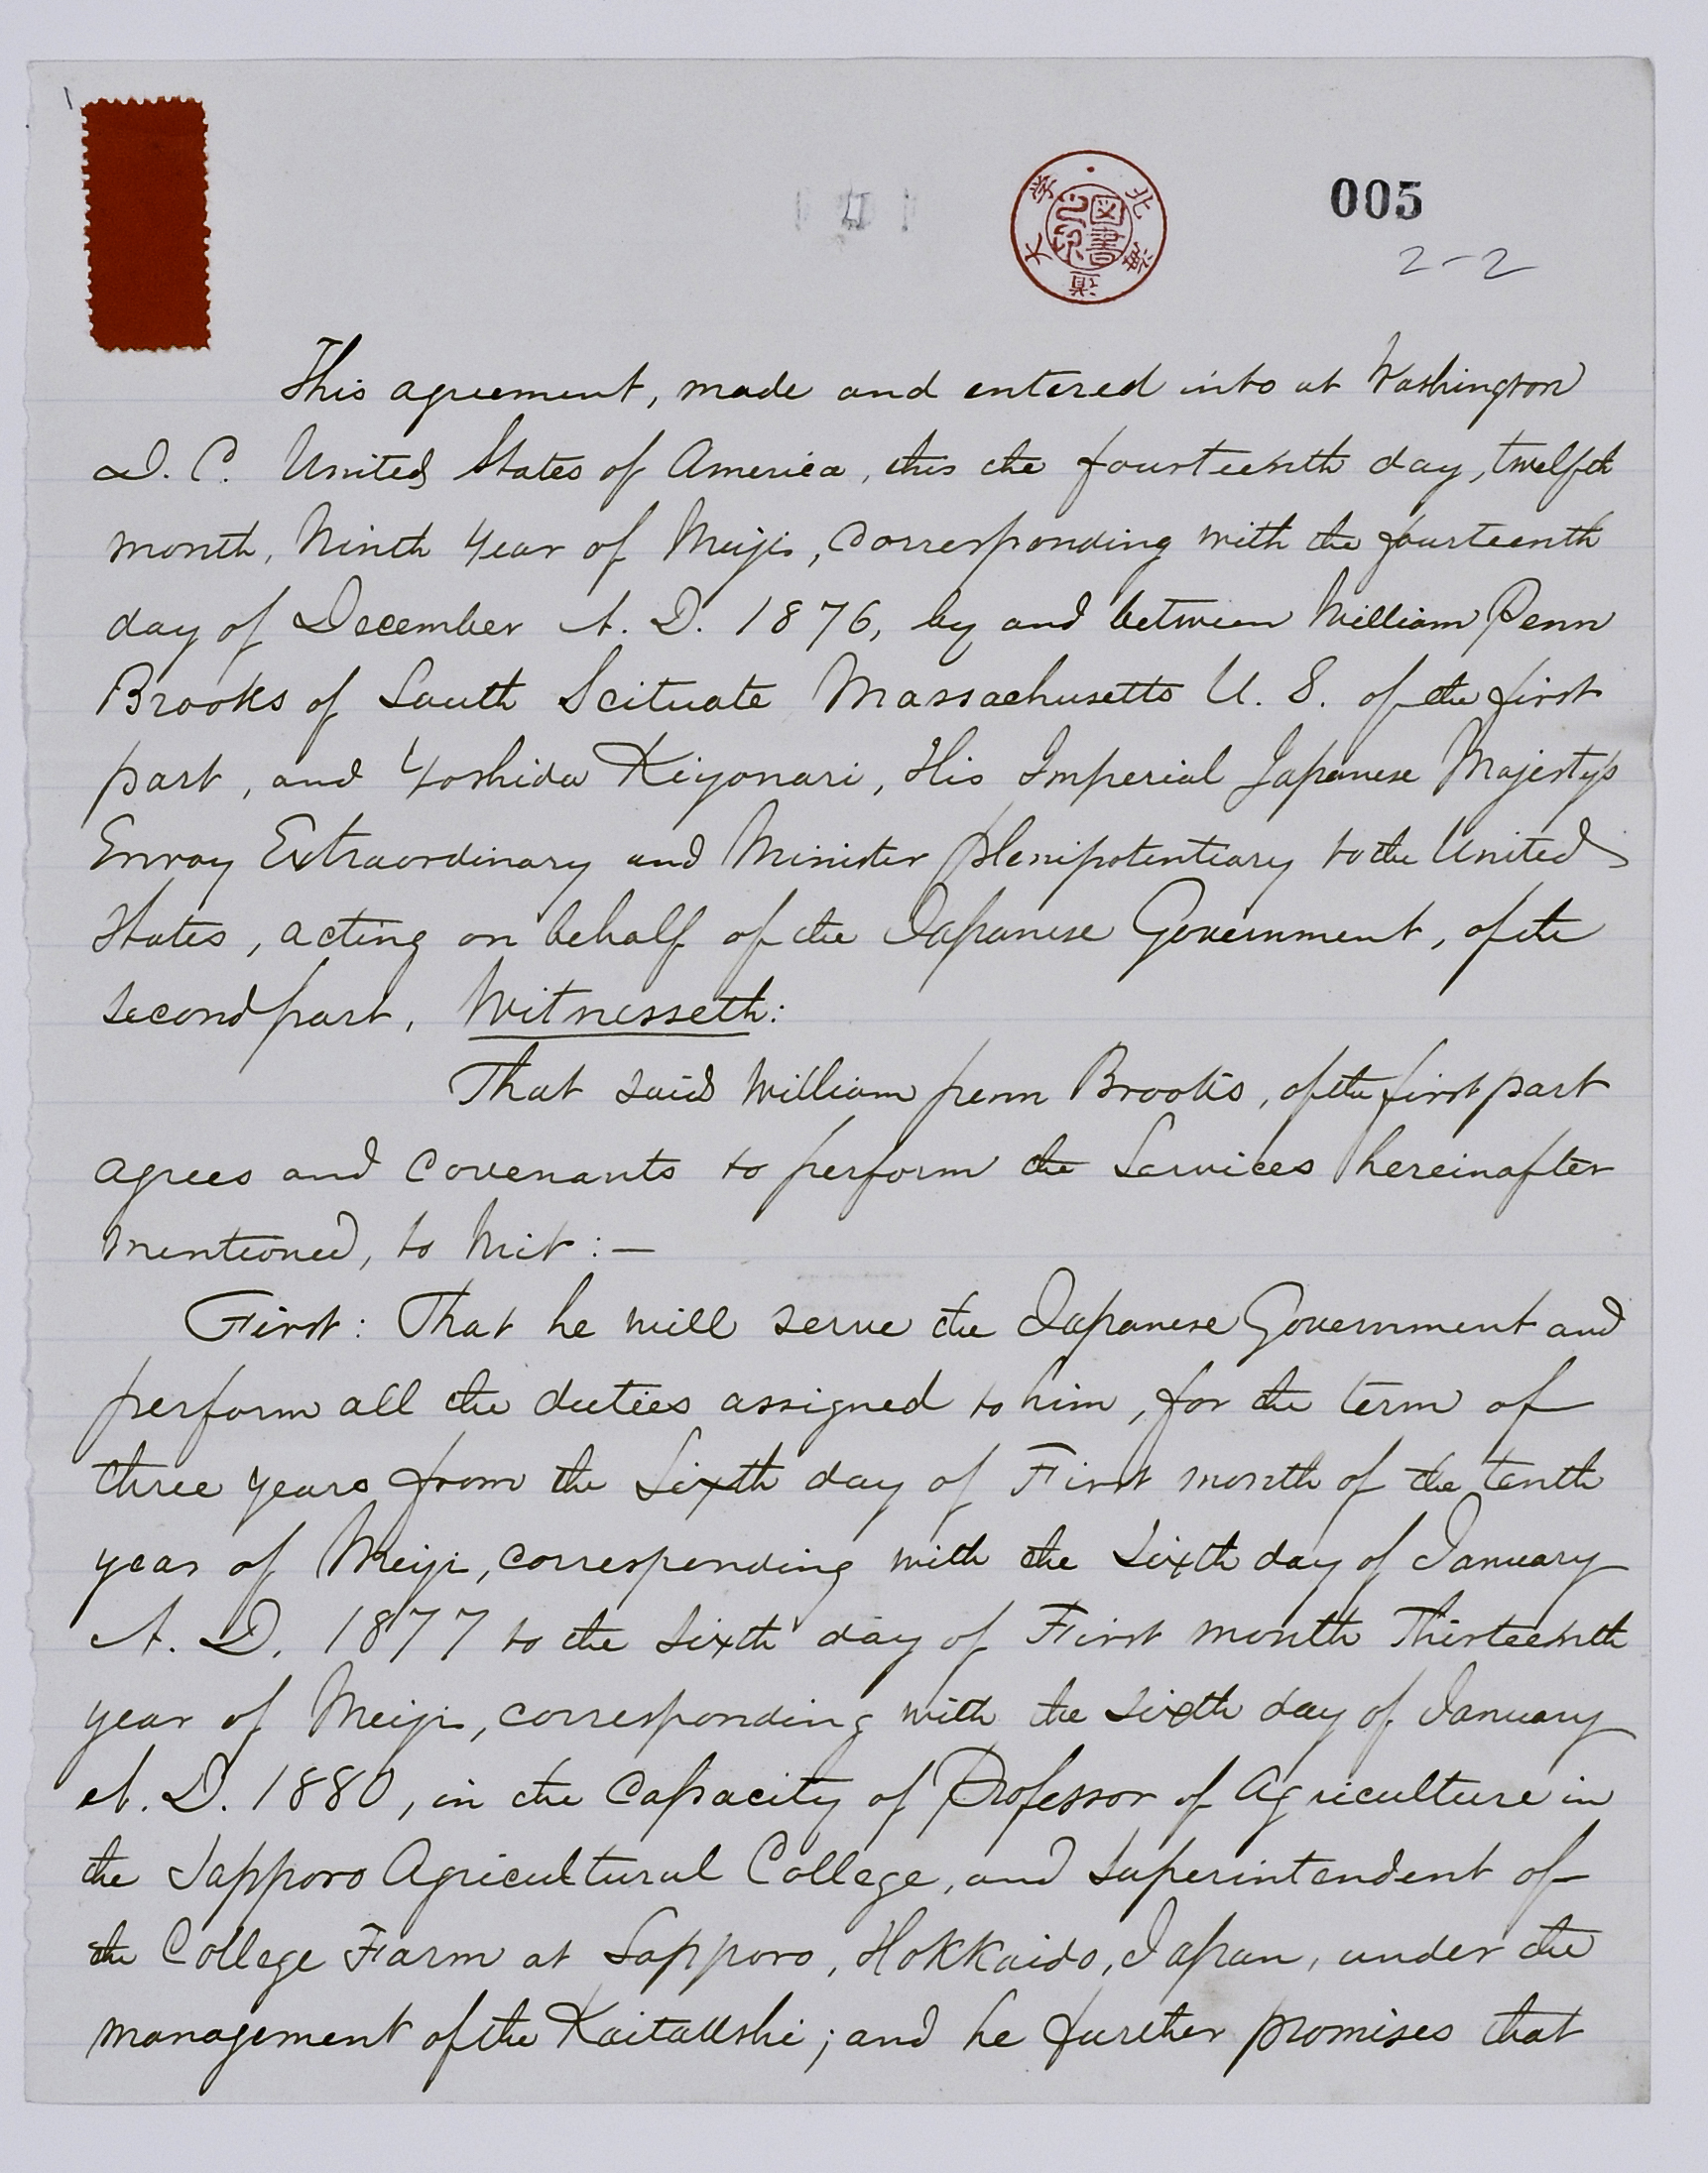 005
2-2
北海道大学
図書
This agreement, made and entered into at Washington
D. C. United States of America, this the fourteenth day, twelfth
month, Ninth Year of Meiji, Corresponding with the fourteenth
day of December A. D. 1876, by and between William Penn
Brooks of South Scituate Massachusetts U. S. of the first
part, and Yoshida Kiyonari, His Imperial Japanese Majesty's
Envoy Extraordinary and Minister Plenipotentiary to the United
States, acting on behalf of the Japanese Government, of the
second part, Witnesseth:
That said William penn Brooks, of the first part
agrees and Covenants to perform the Services hereinafter
mentioned, to Wit:—
First: That he will serve the Japanese Government and
perform all the duties assigned to him, for the term of
three years from the Sixth day of First month of the tenth
year of Meiji, corresponding with the Sixth day of January
A. D. 1877 to the sixth day of First month Thirteenth
year of Meiji, corresponding with the sixth day of January
A. D. 1880, in the Capacity of Professor of Agriculture in
the Sapporo Agricultural College, and Superintendent of
the College Farm at Sapporo, Hokkaido, Japan, under the
management of the Kaitakushi; and he further promises that